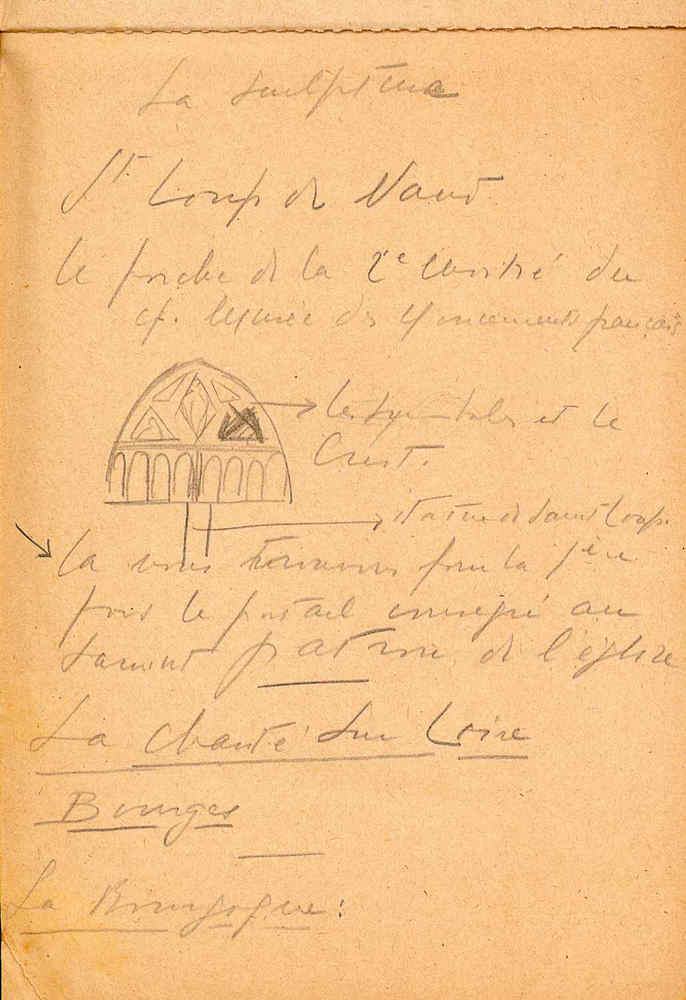 La sculpture
St. Loup de Naud
le porche de la 2e moitié du
cf. Musée des Monuments français
les symboles et le
Christ.
statue de Saint Loup.
La nous trouvons pour la 1ère
fois le portail consacré au
saint patron de l'église
La Charité sur Loire
Bourges
La Bourgogne: